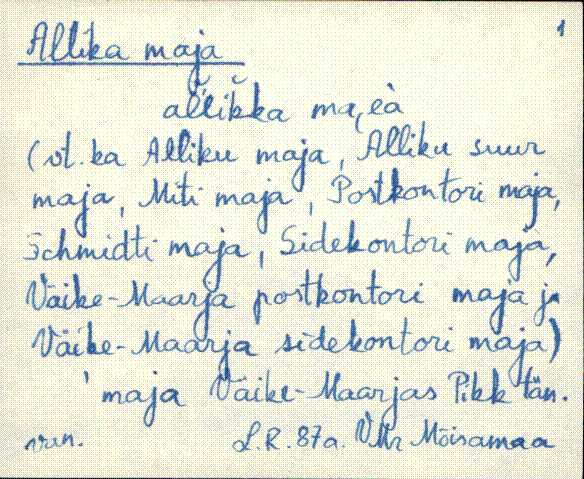 1
Allika maja
alĭikka ma,eà
(vt. ka Alliku maja, Alliku suur
maja, Miti maja, Postkontori maja,
Schmidti maja, Sidekontori maja,
Väike-Maarja postkontori maja ja
Väike-Maarja sidekontori maja)
' maja Väike-Maarjas Pikk tän.
L.R. 87a. VMr Mõisamaa